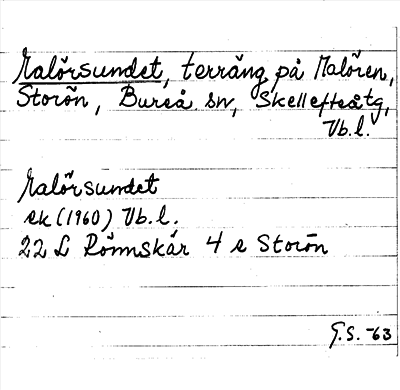 Malörsundet, terräng på Malören,
Storön, Bureå sn, Skellefteå tg,
Vb.l.
Malörsundet
ek (1960) Vb.l.
22 L Rönnskär 4 e Storön
G.S. -63